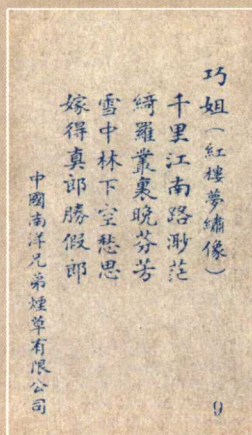 巧姐(紅樓夢繡像)
千里江南路渺茫
綺羅叢裏晚芬芳
雪中林下空愁思
嫁得真郎勝假郎
中國南洋兄弟煙草有限公司
9